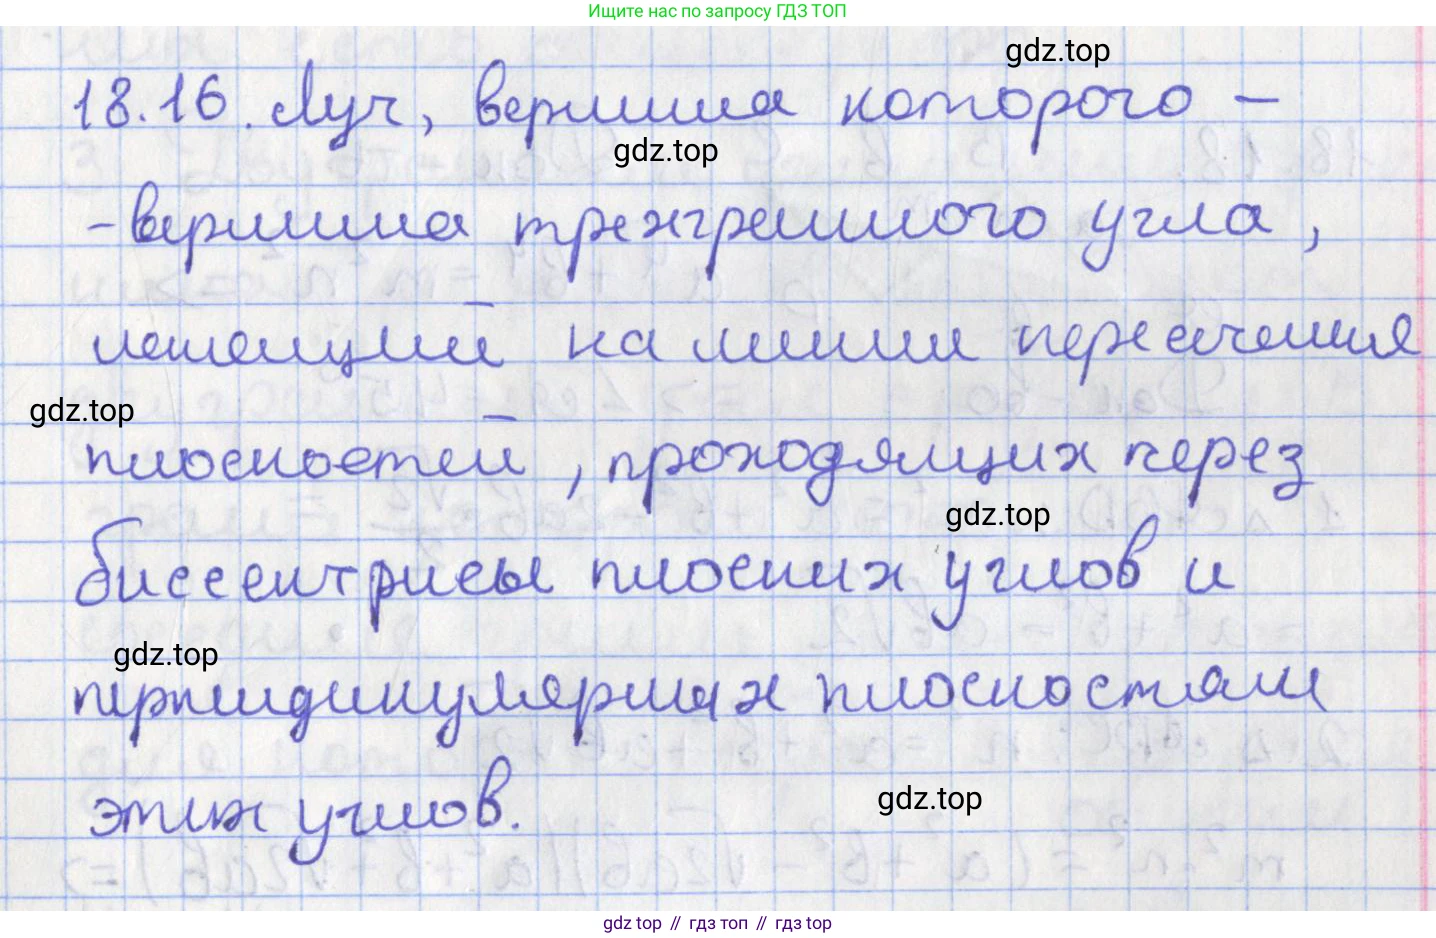 Ищите нас по запросу ГДЗ ТОП
gdz.top
18.16. Луч, вершина которого –
gdz.top
– вершина трехгранного угла,
лежащий на линии пересечения
gdz.top
плоскостей, проходящих через
gdz.top
биссектрисы плоских углов и
gdz.top
перпендикулярных плоскостям
этих углов.
gdz.top
gdz top // гдз топ // гдз top